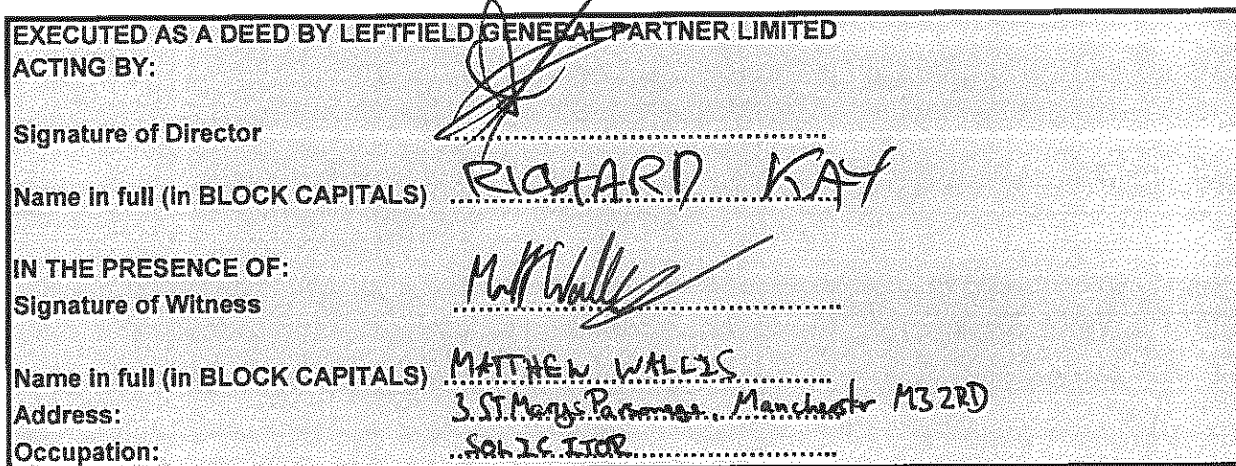 EXECUTED AS A DEED BY LEFTFIELD GENERAL PARTNER LIMITED
ACTING BY:
Signature of Director
Name in full (in BLOCK CAPITALS) RICHARD KAY
IN THE PRESENCE OF:
Signature of Witness
Name in full (in BLOCK CAPITALS) MATTHEW WALLIS
Address: 3 ST. Marys Parsonage, Manchester M3 2RD
Occupation: SOLICITOR